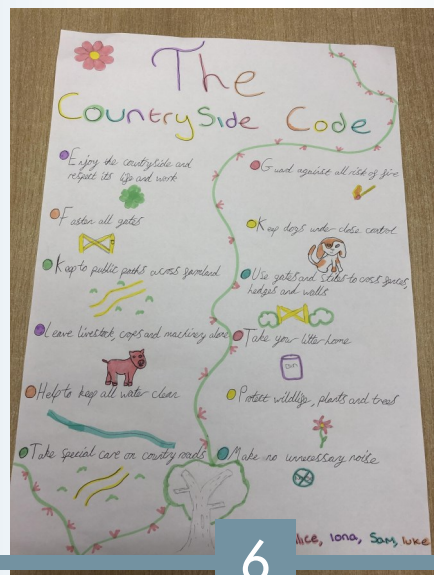 The
Countryside Code
Enjoy the countryside and
respect its life and work
Fasten all gates
Keep to public paths across farmland
Leave livestock, crops and machinery alone
Help to keep all water clean
Take special care on country roads
Guard against all risk of fire
Keep dogs under close control
Use gates and stiles to cross fences,
hedges and walls
Take your litter home
Protect wildlife, plants and trees
Make no unnecessary noise
Alice, Iona, Sam, Luke
6